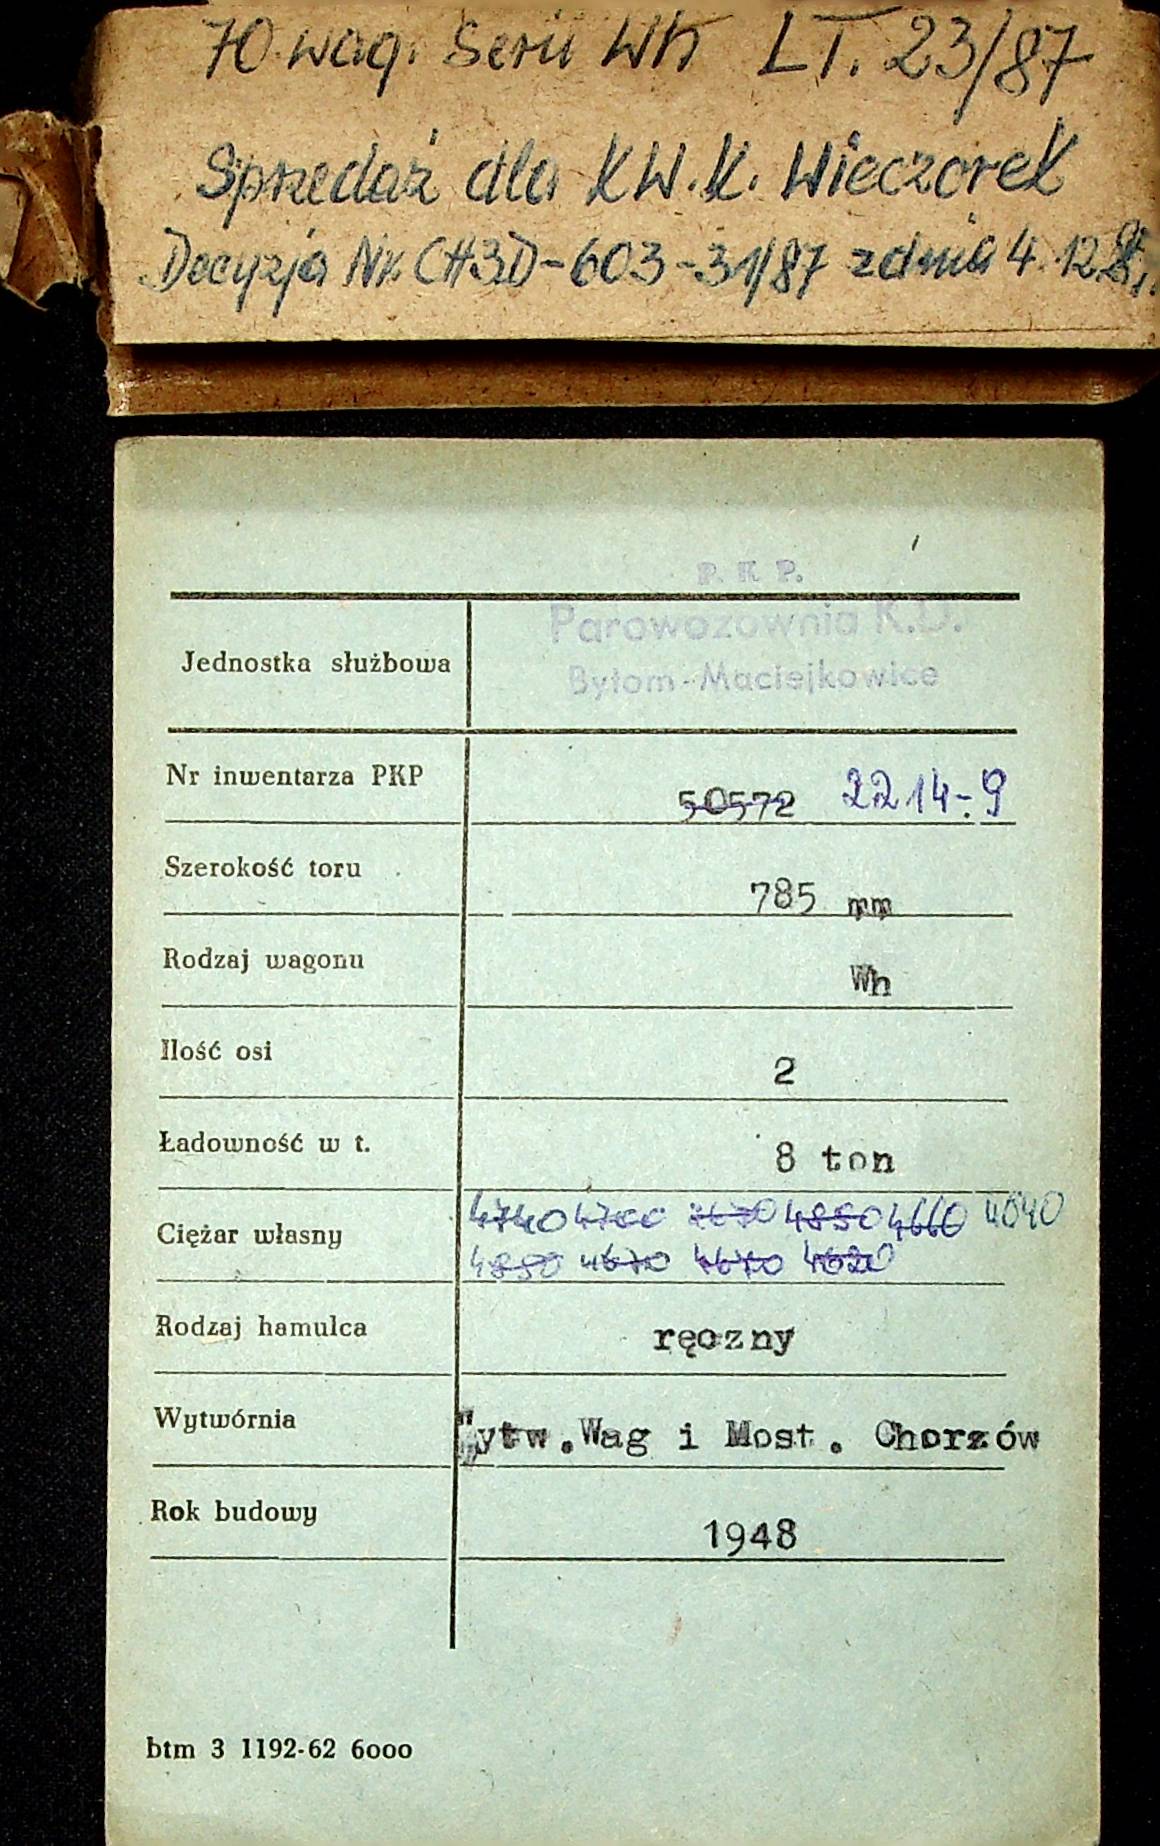 70 wag. Serii Wh LT. 23/87
Sprzedaż dla KW.K. Wieczorek
Decyzja Nr. CH3D-603-31/87 z dnia 4.12.87r.
P. K P.
Parowozownia K.D.
Jednostka służbowa
Bytom-Maciejkowice
Nr inwentarza PKP 50572 2214-9
Szerokość toru 785 mm
Rodzaj wagonu Wh
Ilość osi 2
Ładowność w t. 8 ton
4740 4700 4850 4660 4640
Ciężar własny
4850 4670 4670 4620
Rodzaj hamulca ręczny
Wytwórnia Wytw.Wag i Most. Chorzów
Rok budowy 1948
btm 3 1192-62 6000